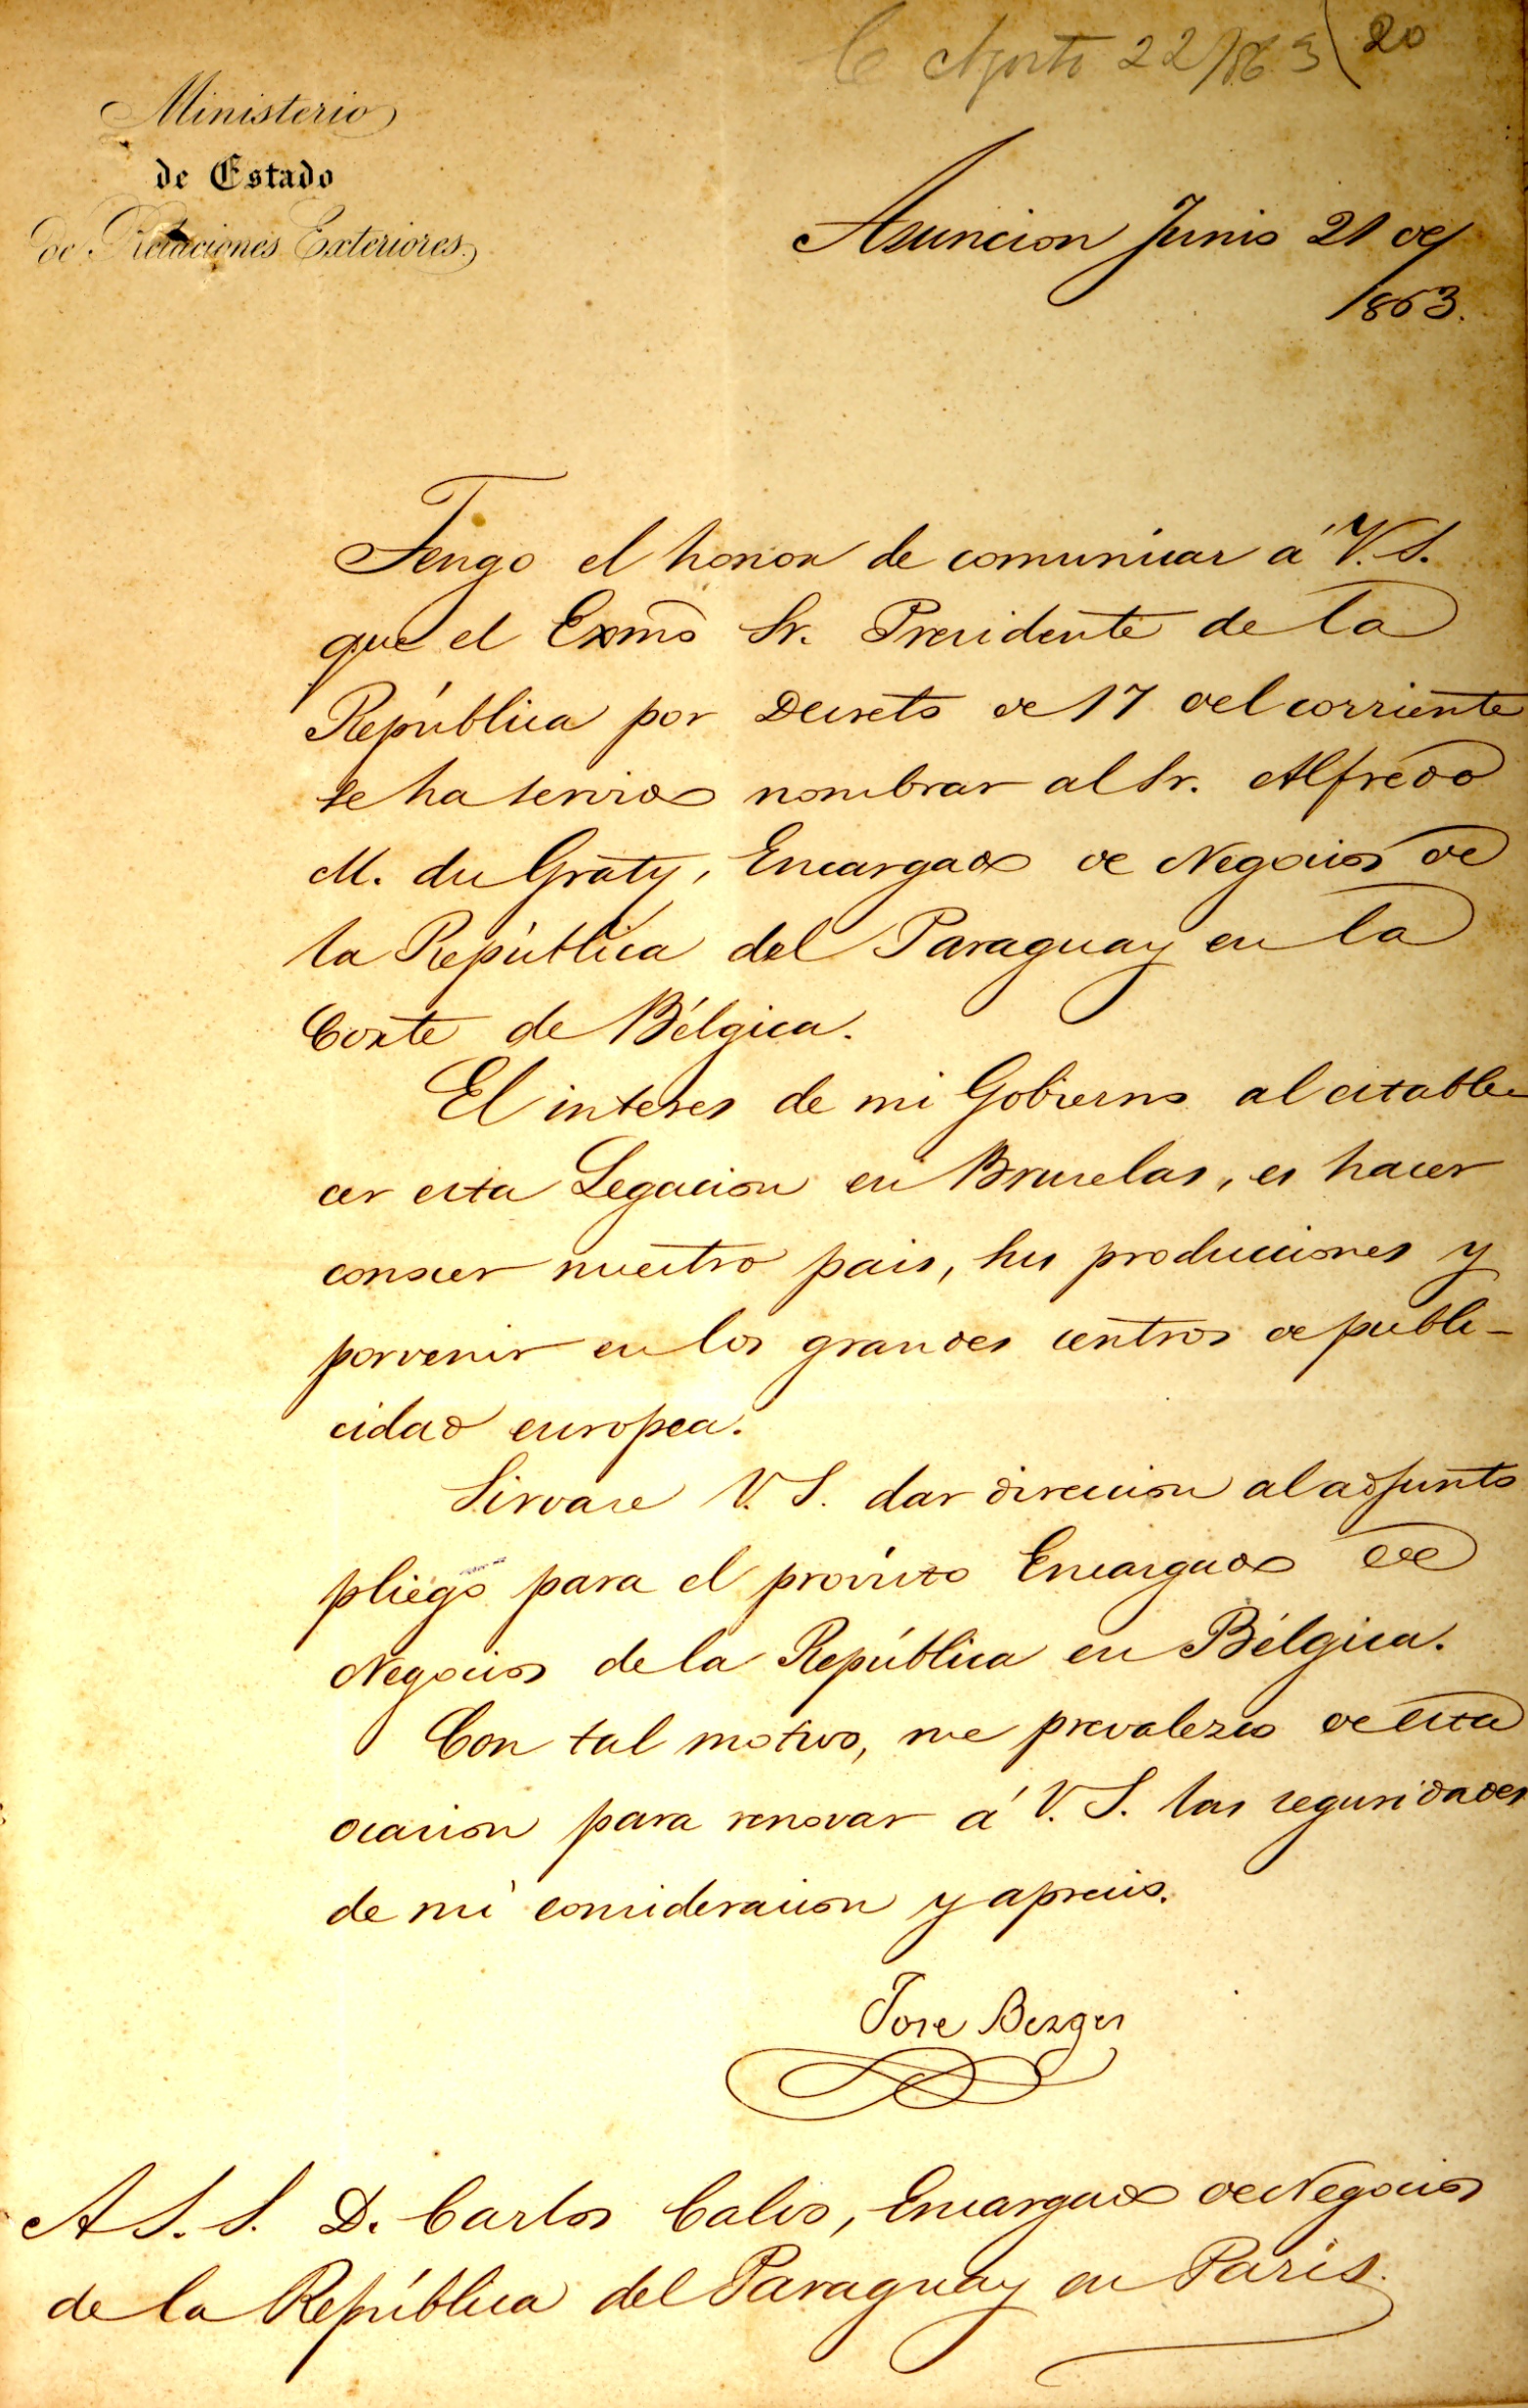 C Agosto 22/863 20
Ministerio
de Estado
de Relaciones Exteriores.
Asuncion Junio 21 de
1863.
Tengo el honor de comunicar á V. S.
que el Exmō Sr. Presidente de la
República por Decreto de 17 del corriente
se ha servido nombrar al Sr. Alfredo
M. du Graty, Encargado de Negocios de
la República del Paraguay en la
Corte de Bélgica.
El interes de mi Gobierno al estable
cer esta Legacion en Bruselas, es hacer
conocer nuestro pais, sus producciones y
porvenir en los grandes centros de publi-
cidad europea.
Sirvase V. S. dar direccion al adjunto
pliego para el provisto Encargado de
Negocios de la República en Bélgica.
Con tal motivo, me prevalezco de esta
ocasion para renovar á V. S. las seguridades
de mi consideracion y aprecio.
Jose Berges
A S. S. D. Carlos Calvo, Encargado de Negocios
de la República del Paraguay en Paris.